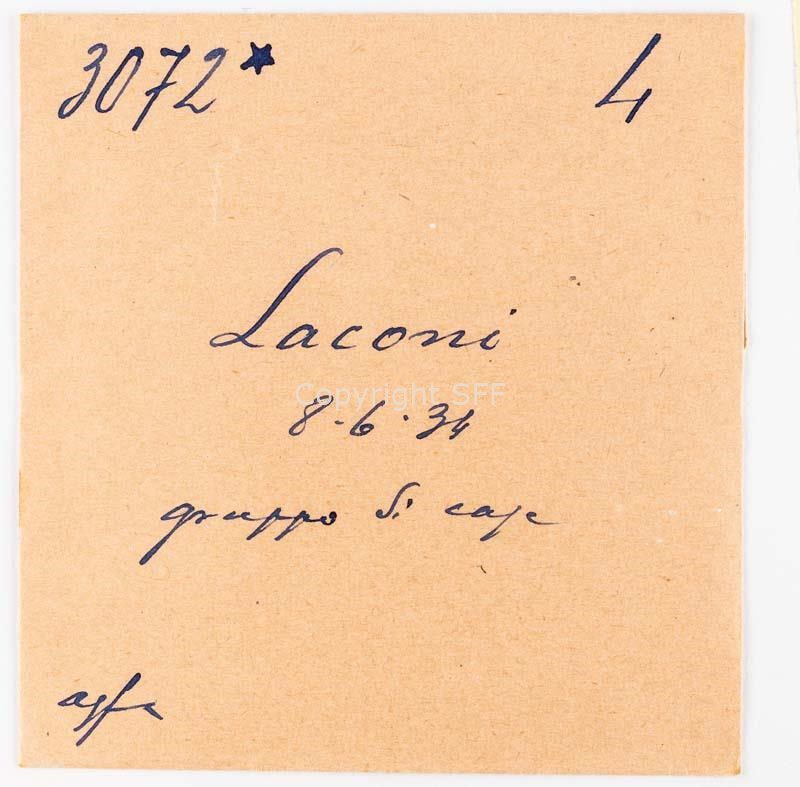 3072★ 4
Laconi
Copyright SFF
8-6-34
gruppo di case
agfa